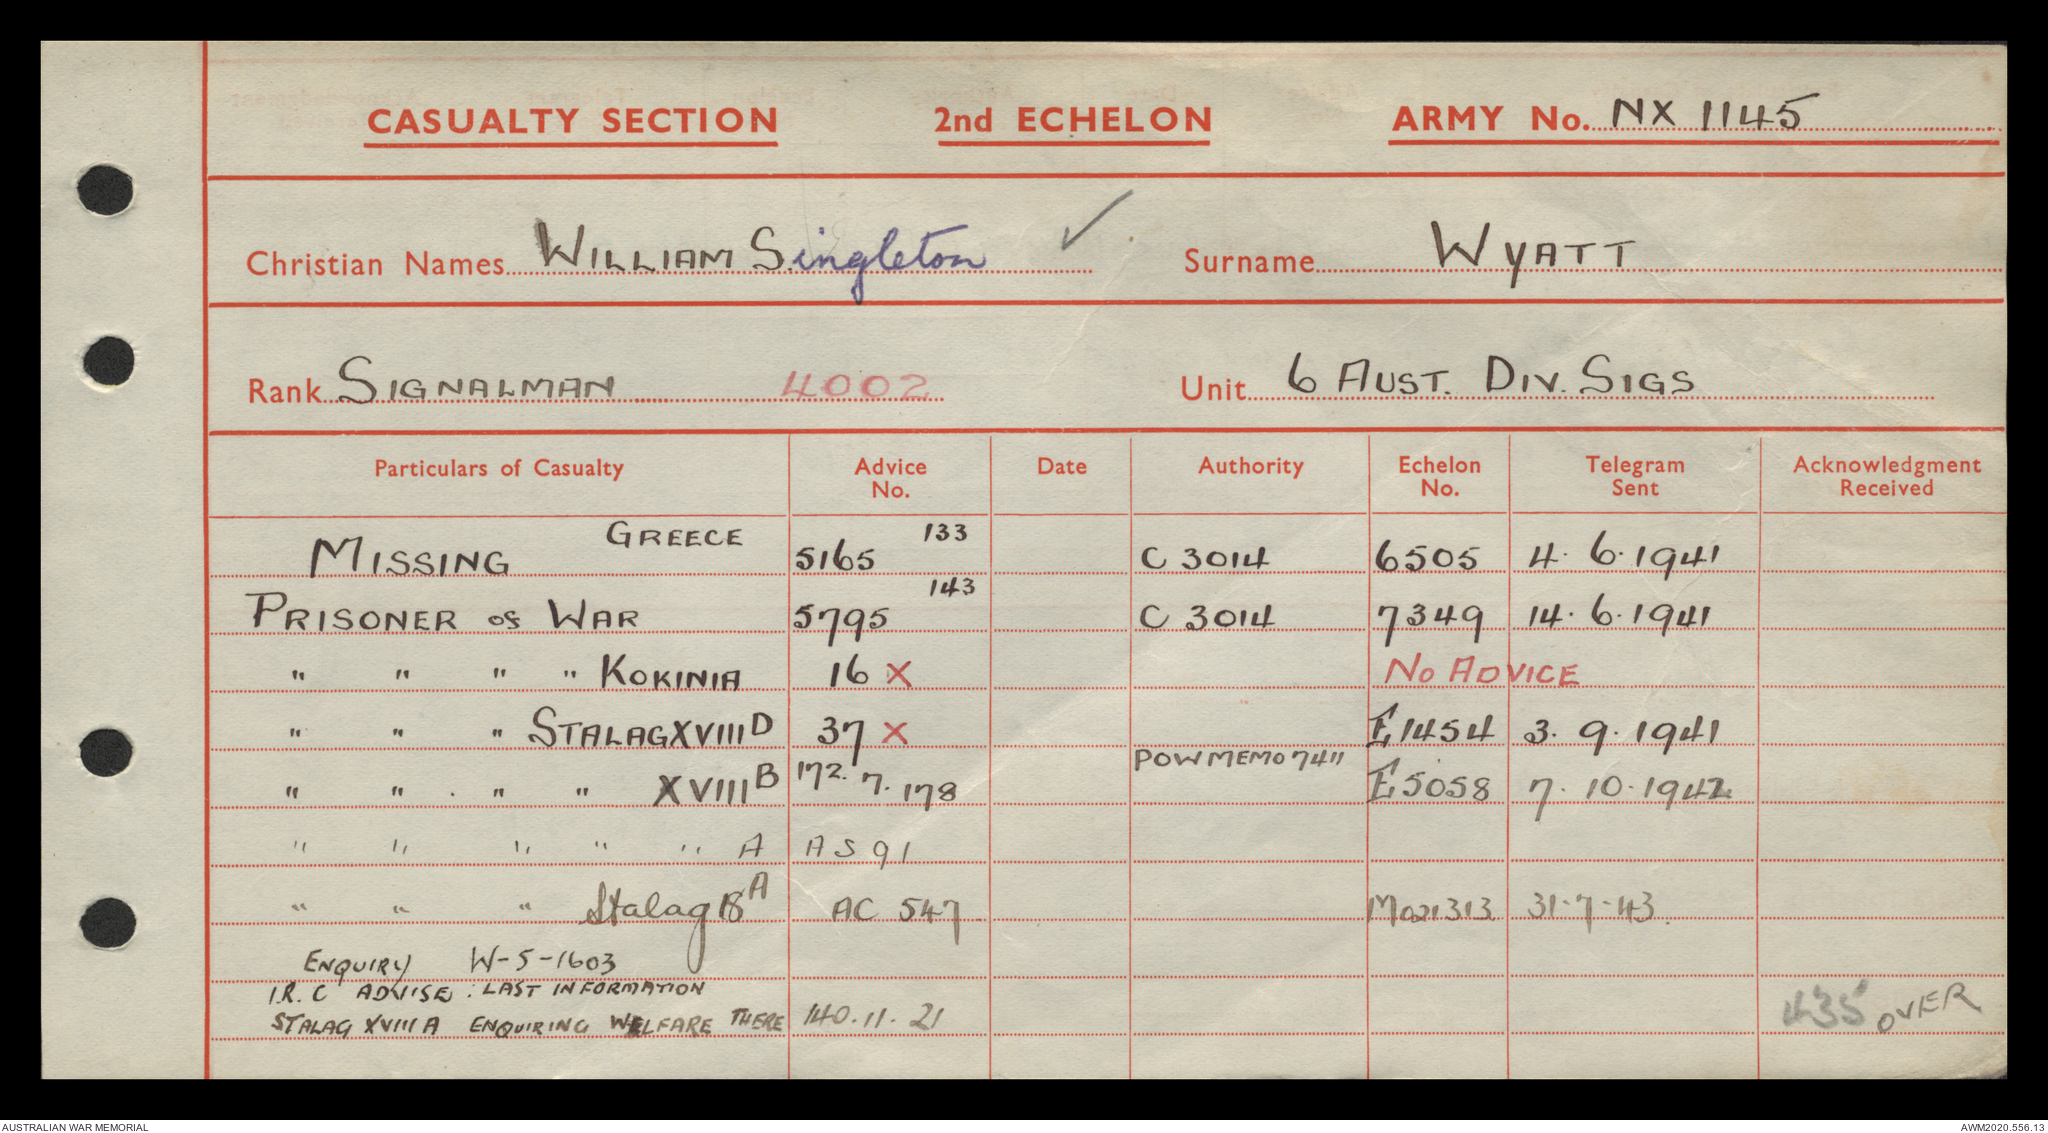 CASUALTY SECTION 2nd ECHELON ARMY No. NX 1145
Christian Names WILLIAM Singleton Surname WYATT
Rank SIGNALMAN 4002 Unit 6 AUST. DIV. SIGS
Particulars of Casualty Advice No. Date Authority Echelon No. Telegram Sent Acknowledgment Received
MISSING GREECE 5165 133 C 3014 6505 4. 6. 1941
PRISONER of WAR 5795 143 C 3014 7349 14. 6. 1941
" " " " KOKINIA 16 X NO ADVICE
" " " STALAG XVIII D 37 X E1454 3. 9. 1941
" " " " XVIII B 172. 7. 178 POW MEMO 7411 E5058 7. 10. 1942
" " " " " A AS 91
" " " Stalag 18 A AC 547 31-7-43.
ENQUIRY W-5-1603
I.R.C ADVISE. LAST INFORMATION
STALAG XVIII A ENQUIRING WELFARE THERE 140.11.21 435 OVER
AUSTRALIAN WAR MEMORIAL AWM2020.556.13